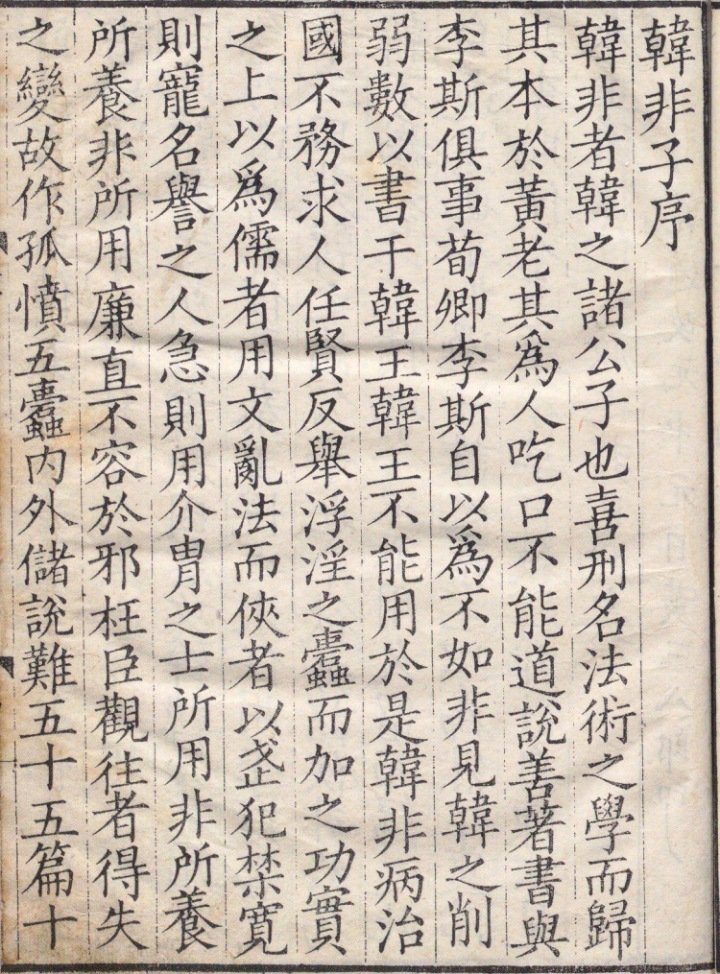 韓非子序
韓非者韓之諸公子也喜刑名法術之學而歸
其本於黃老其爲人吃口不能道說善著書與
李斯俱事荀卿李斯自以爲不如非見韓之削
弱數以書干韓王韓王不能用於是韓非病治
國不務求人任賢反舉浮淫之蠹而加之功實
之上以爲儒者用文亂法而俠者以武犯禁寬
則寵名譽之人急則用介胄之士所用非所養
所養非所用廉直不容於邪枉臣觀往者得失
之變故作孤憤五蠹内外儲說難五十五篇十